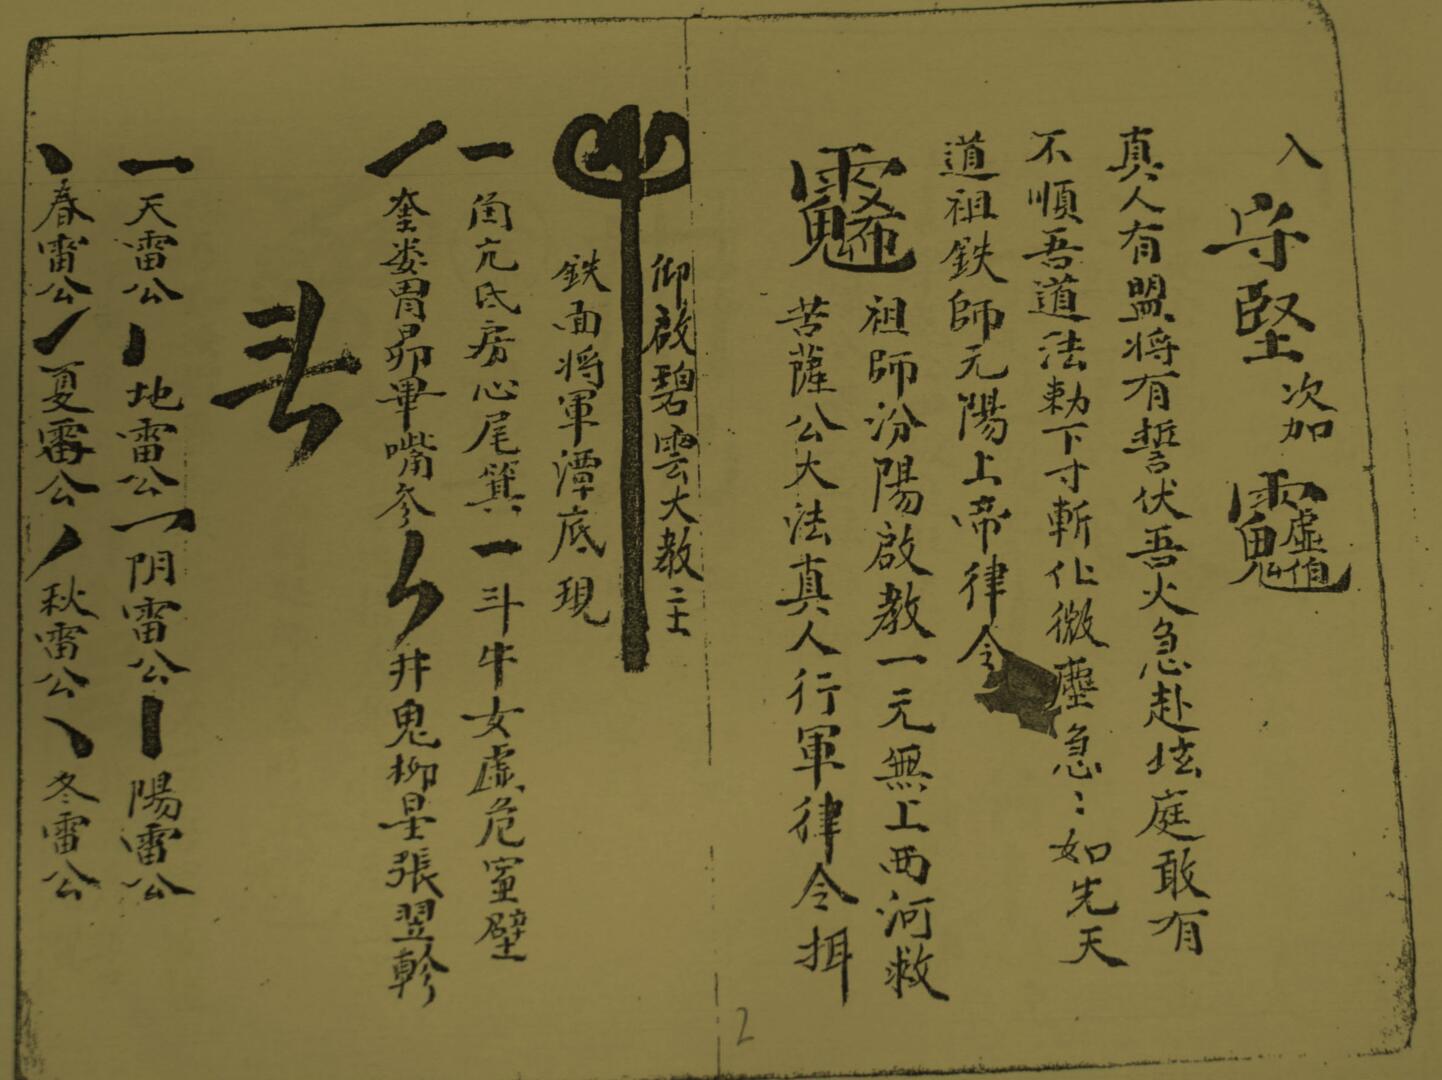 入
守堅 次加
真人有盟将有誓伏吾火急赴坛庭敢有
不順吾道法勅下寸斬化微塵急〻如先天
道祖鉄師元陽上帝律令
祖師汾陽啟教一元無上西河救
苦薩公大法真人行軍律令揖
仰啟碧雲大教主
鉄面将軍潭底現
一角亢氐房心尾箕一斗牛女虚危室壁
奎娄胃昴畢嘴参 井鬼柳星張翌軫
天雷公 地雷公 阴雷公 陽雷公
春雷公 夏雷公 秋雷公 冬雷公
2